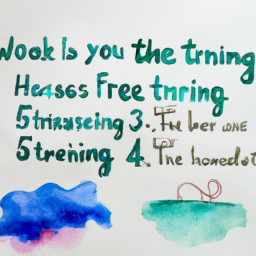 Wook ls you the trning
Heases Free tnring
5trirascing 3. The ber one
5trening 4. The honedot